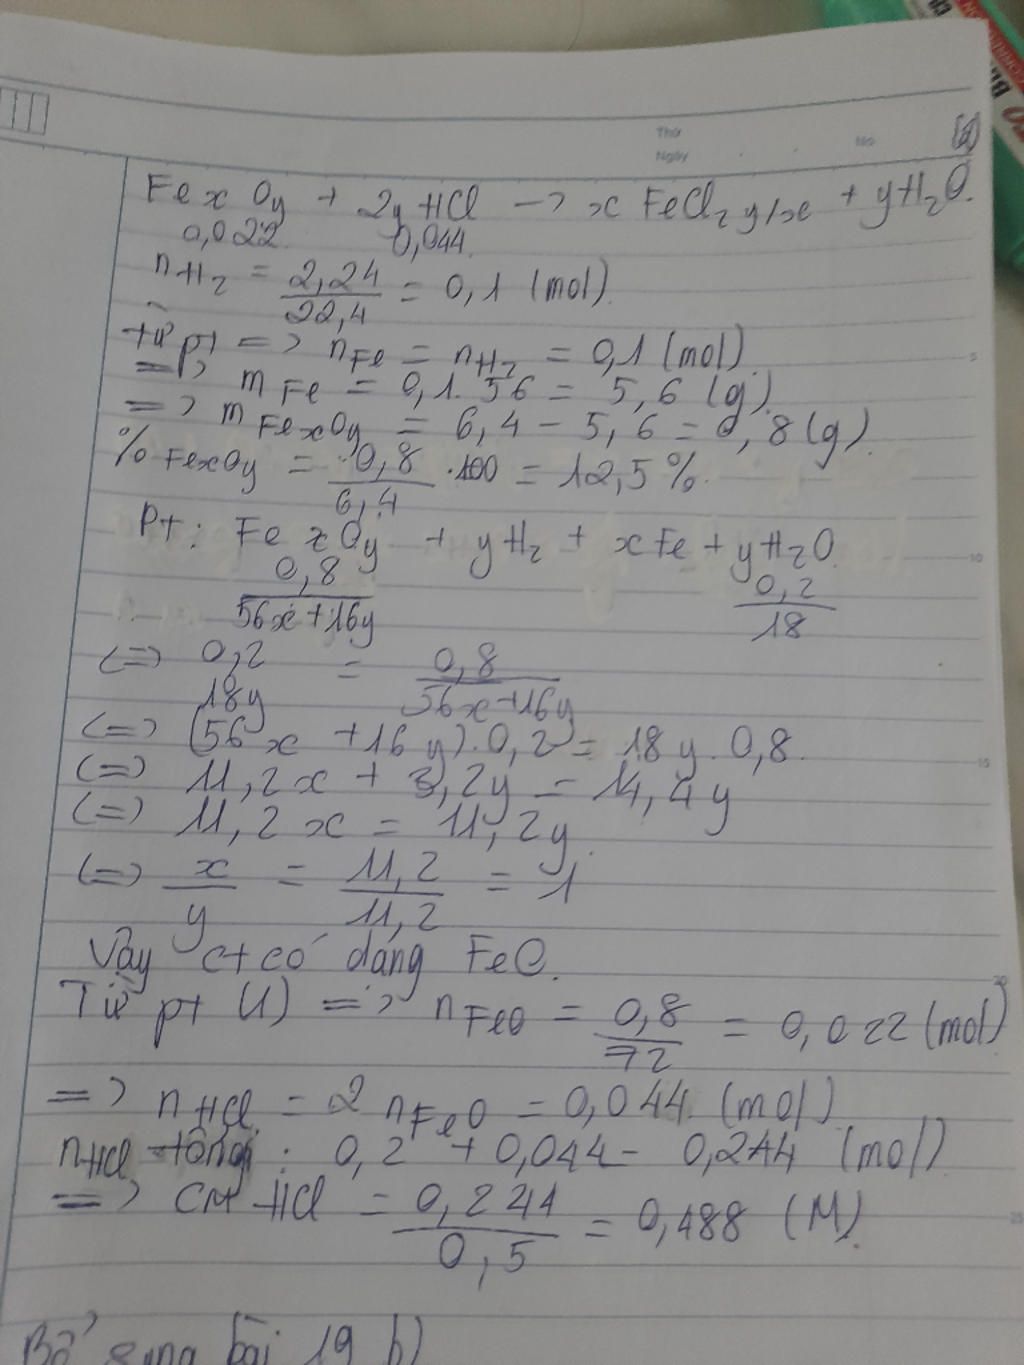 Thứ
Ngày
No
FexOy + 2y HCl -> x FeCl2y/x + yH2O.
0,022 0,044
nH2 = 2,24/22,4 = 0,1 (mol)
từ pt => nFe = nH2 = 0,1 (mol)
=> mFe = 0,1.56 = 5,6 (g)
=> mFexOy = 6,4 - 5,6 = 0,8 (g)
% FexOy = 0,8/6,4 .100 = 12,5%.
Pt: FexOy + yH2 + xFe + yH2O
0,8/56x+16y 0,2/18
<=> 0,2/18y = 0,8/56x+16y
<=> (56x + 16y).0,2 = 18y.0,8.
<=> 11,2x + 3,2y = 14,4y
<=> 11,2x = 11,2y.
<=> x/y = 11,2/11,2 = 1
Vậy ct có dáng FeO.
Từ pt (1) => nFeO = 0,8/72 = 0,022 (mol)
=> nHCl = 2 nFeO = 0,044 (mol)
nHCl tổng : 0,2 + 0,044 = 0,244 (mol)
=> CM HCl = 0,244/0,5 = 0,488 (M)
Bổ sung bài 19 b)
5
10
15
20
25